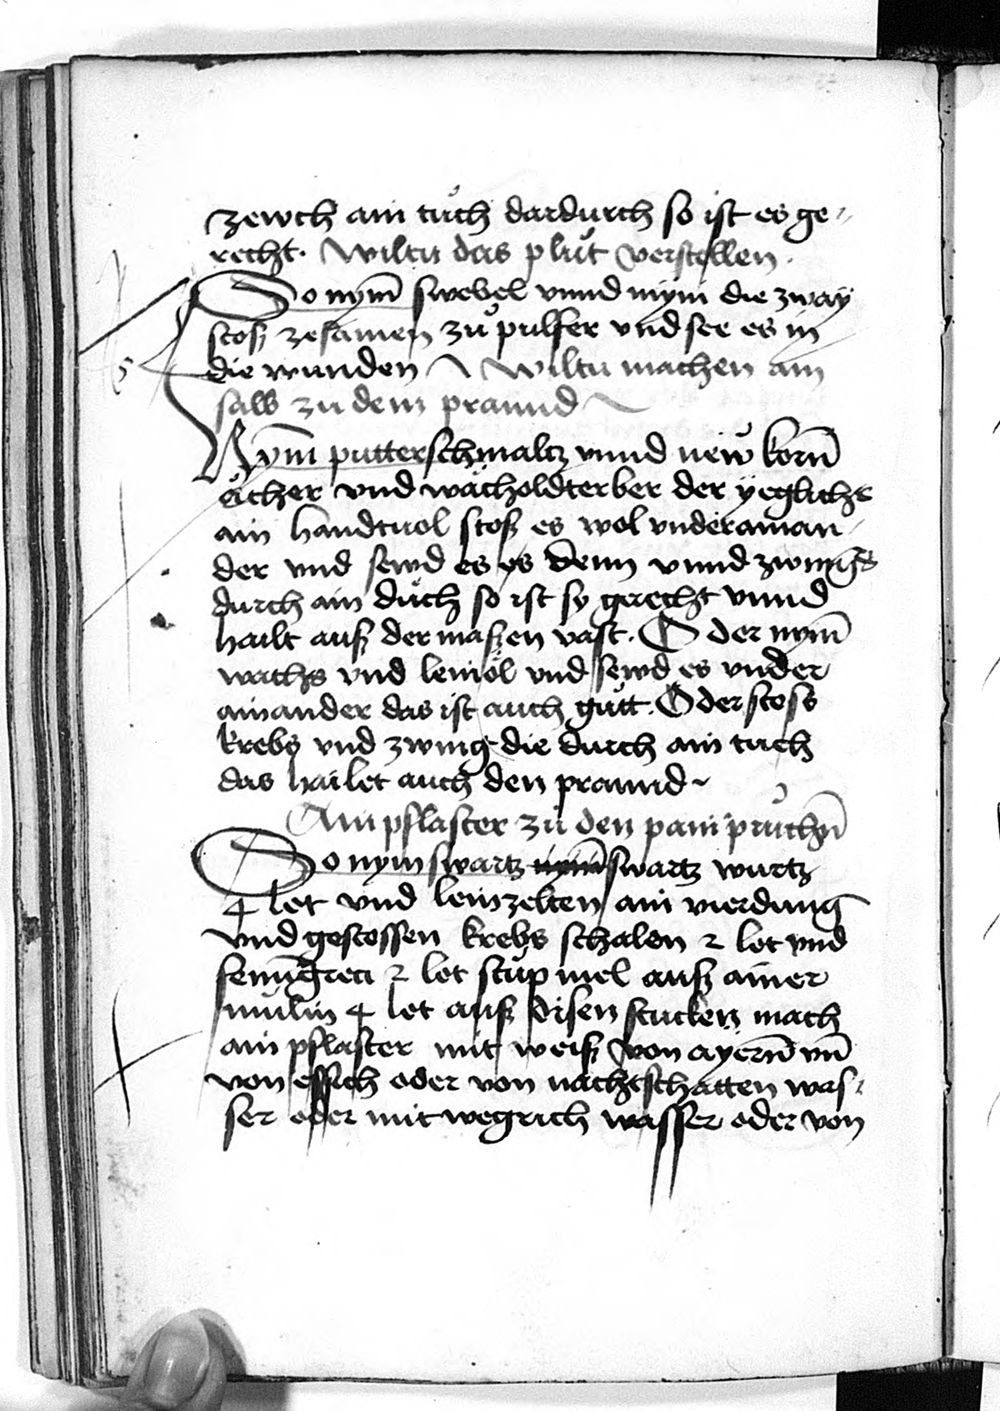 zewch ain tuͦch dardurch so ist es ge-
recht. Wiltu das pluͦt verstellen.
So nym̄ swebel vnnd mym die zway
stosz zesamen zuͦ pulfer vnd see es in
die wunden Wiltu machen ain
salb zu dem prannd
Nym̄ putterschmaltz vnnd new korn̄
äicher vnd wächoldterber der yeglichs
ain handtuol stosz es wol vnderainan-
der vnd sewd es es denn vnnd zwings
durch ain duͦch so ist sy gerecht vnnd
hailt ausz der maszen vast. Oder nym̄
wachs vnd leinöl vnd sewd es vnder
ainander das ist auch guͦtt. Oder stoss
krebs vnd zwing die durch ain tuch
das hailet auch den prannd
Ain pflaster zuͦ den pain pruͦchn̄
So nym swartz nym̄ swartz wurtz
4 lot vnd leinzelten ain vierdung
vnd gestossen krebs schalen 2 lot vnd
fenūgreci 2 lot stuͦp mel ausz ainer
mulin 4 lot ausz disen stucken mach
ain pflaster mit weisz von ayern̄ vn̄
von essich oder von nachtschatten was-
ser oder mit wegrich wasser oder von